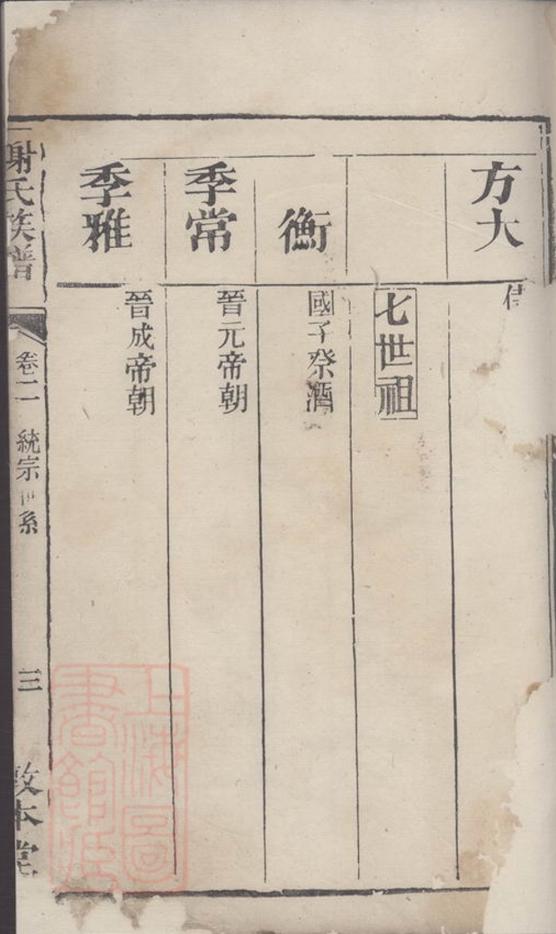 方大
七世祖
衡
國子祭酒
季常
晉元帝朝
季雅
晉成帝朝
謝氏族譜
卷二 統宗世系
三
敦本堂
上海圖書館藏